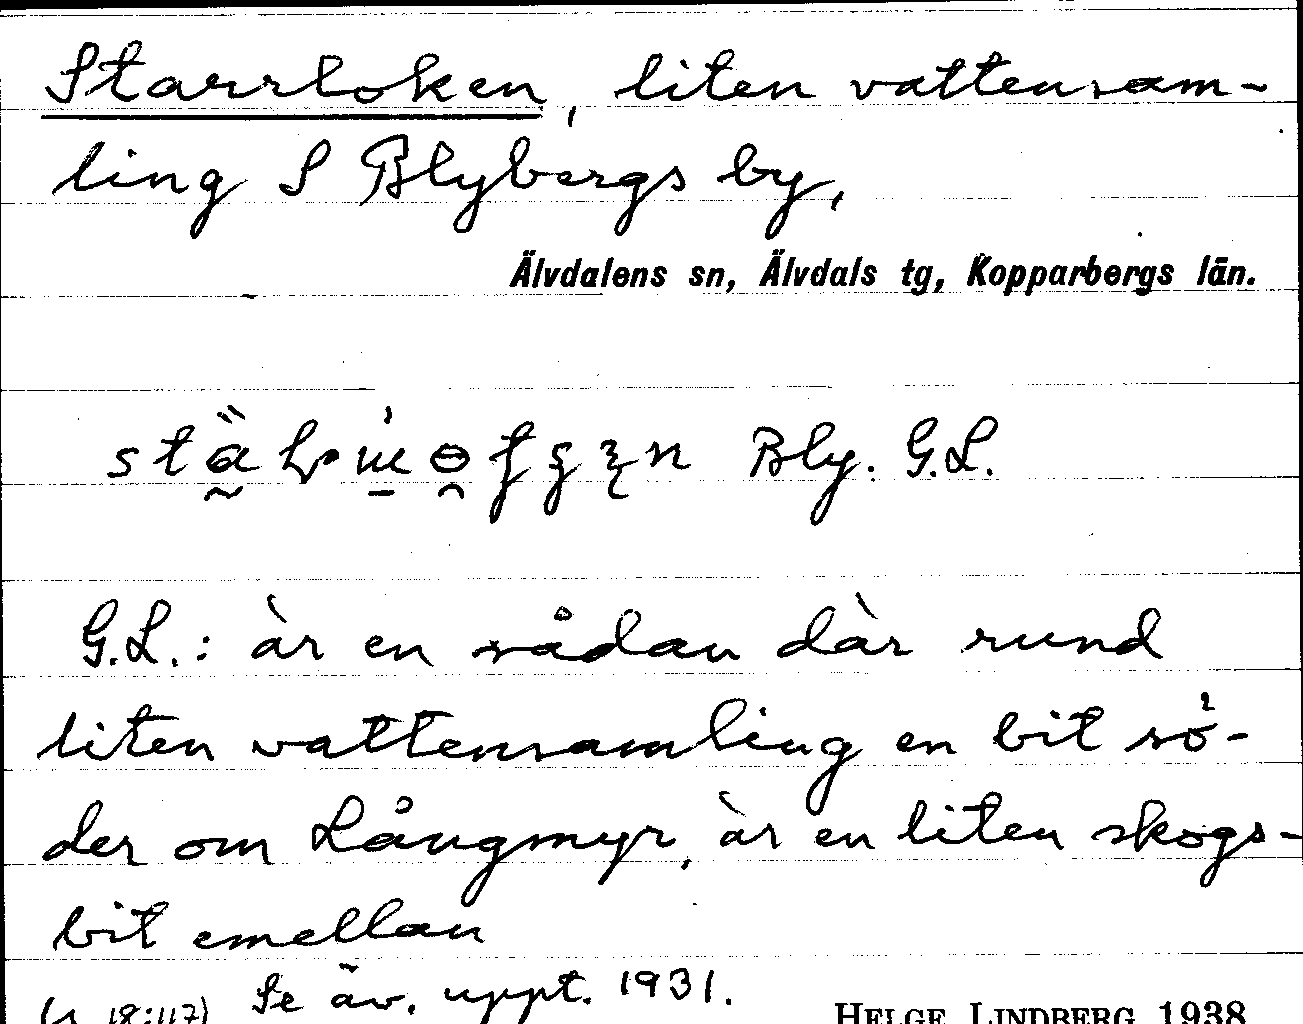 Starrloken, liten vattensam-
ling S Blybergs by,
Älvdalens sn, Älvdals tg, Kopparbergs län.
Bly. G.L.
G.L.: är en sådan där rund
liten vattensamling en bit sö-
der om Långmyr, är en liten skogs-
bit emellan
(s 18:117) Se äv. uppt. 1931.
HELGE LINDBERG 1938